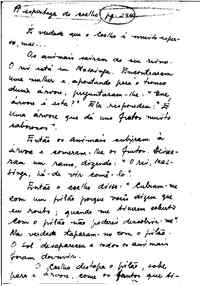 A esperteza do coelho pg. 234
É verdade que o Coelho é muito esper-
to, mas...
Os animais saíram do seu reino.
O rei está em Encontraram
uma mulher e apontando para o tronco
duma árvore, perguntaram-lhe: "Que
árvore é esta?" Ela respondeu: "É
uma árvore que dá uns frutos muito
saborosos".
Então os animais subiram à
árvore e comeram-lhe os frutos. Deixa-
ram um ramo, dizendo: "O rei,
há-de vir comê-lo".
Então o coelho disse: "Cubram-me
com um pilão porque vocês dizem que
eu roubo; quando me tiverem coberto
com o pilão não poderei descobrir-me".
Na verdade taparam-no com o pilão.
O sol desapareceu e todos os animais
foram dormir.
O Coelho destapa o pilão, sobe
para a árvore, come os frutos que ti-